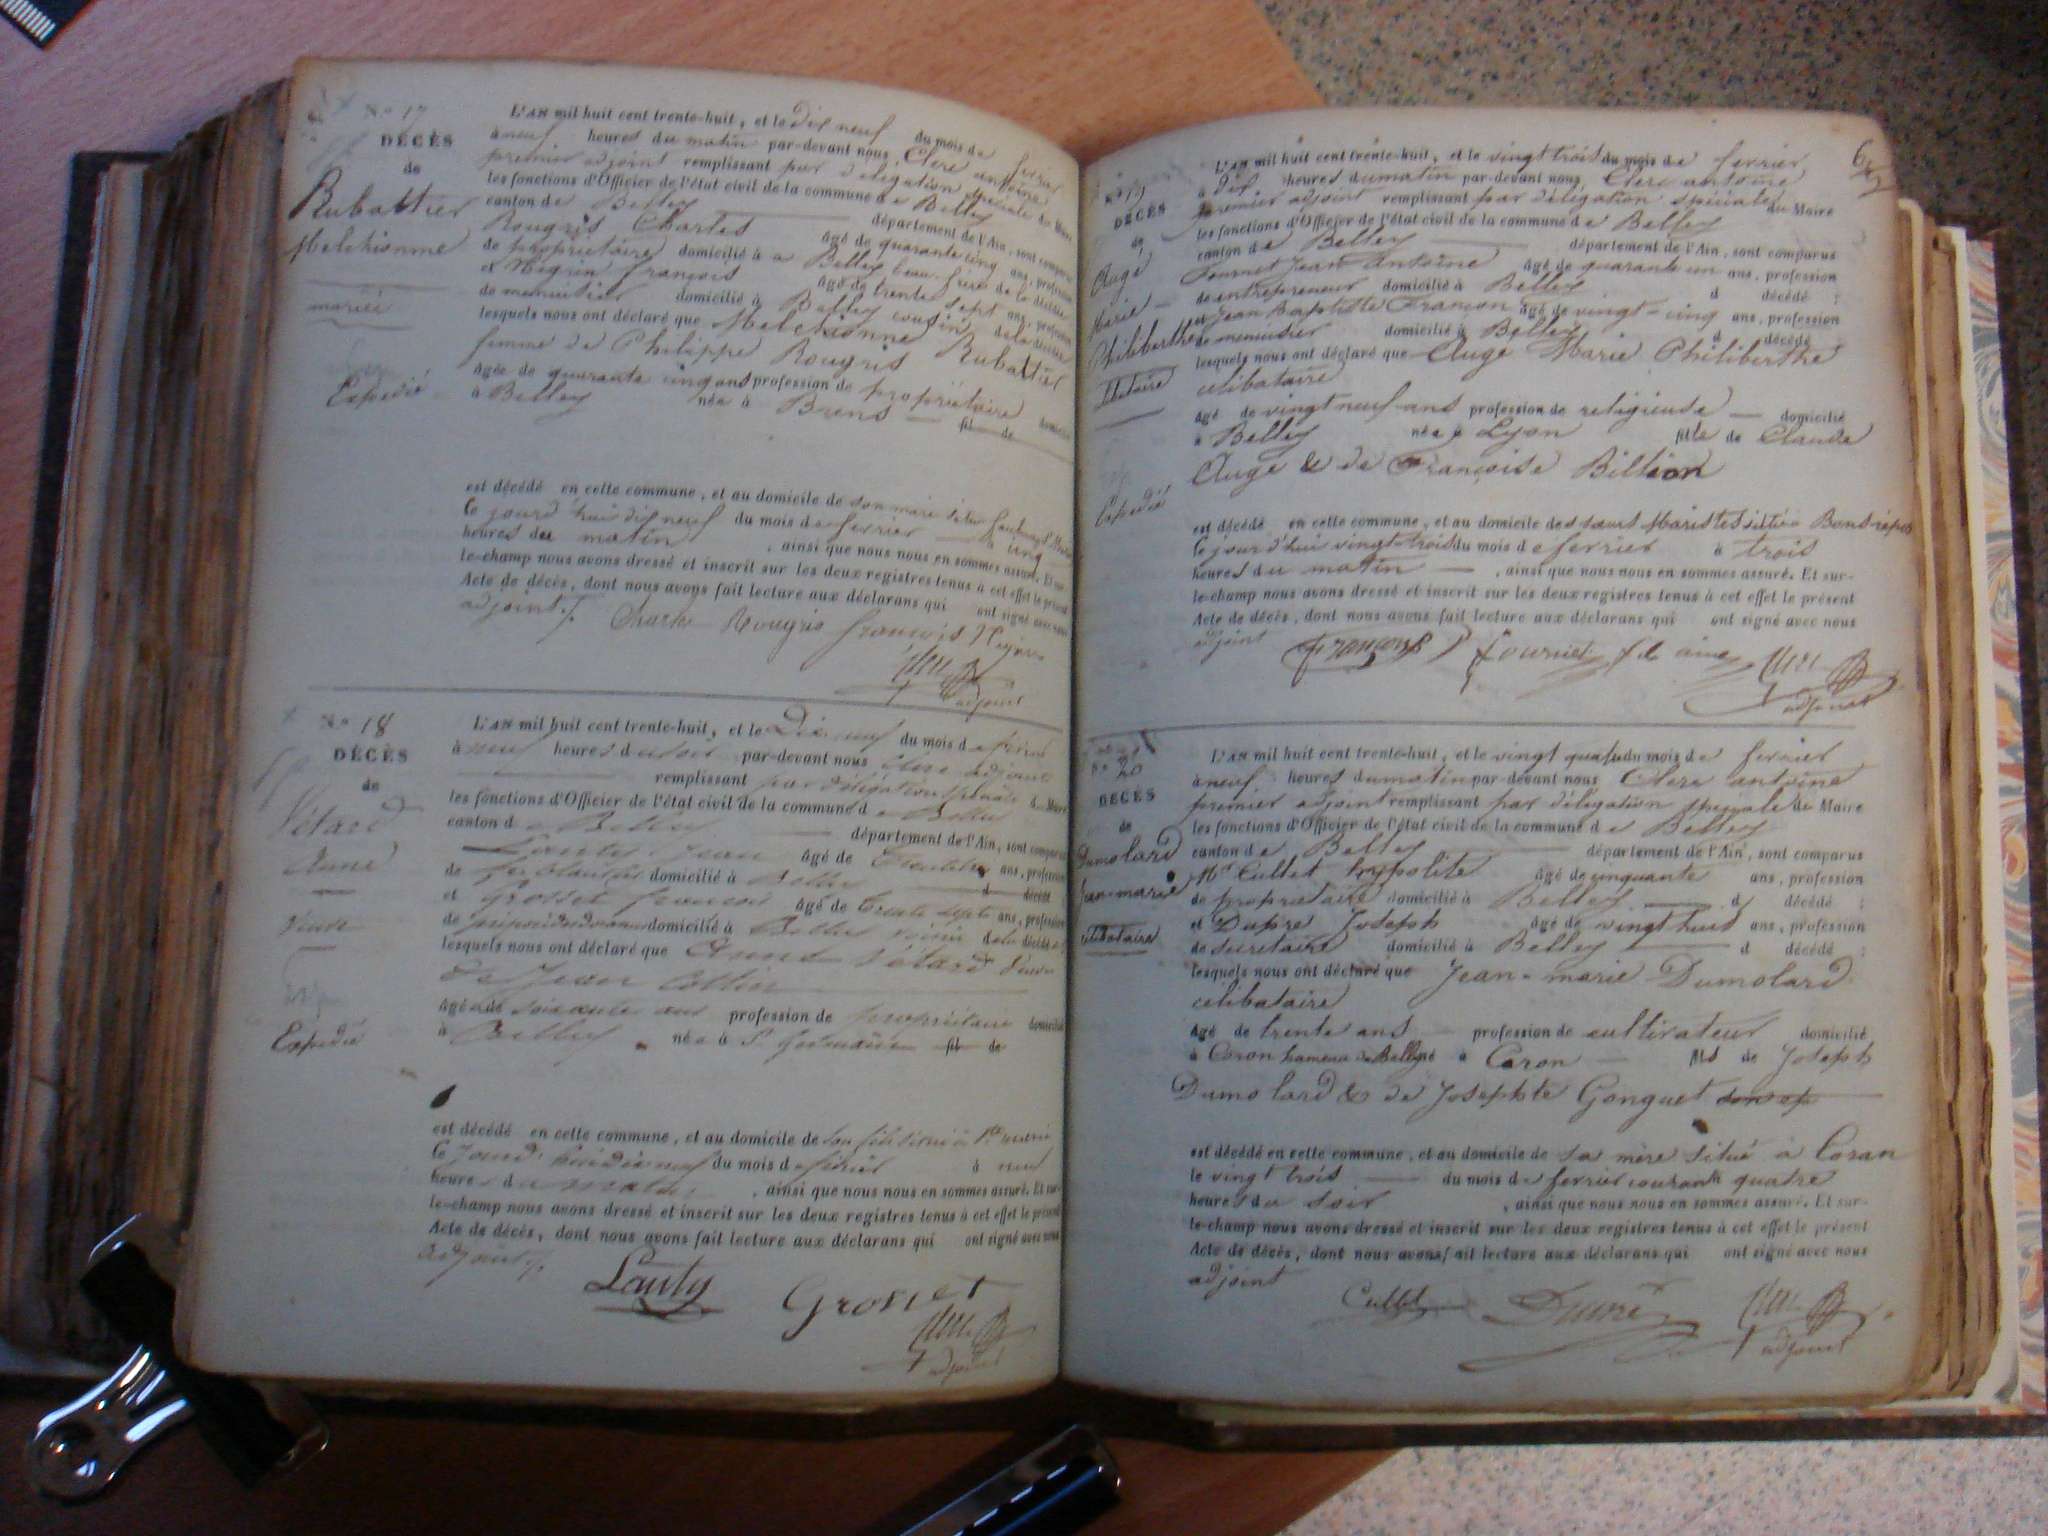 N° 17
DÉCÈS
de
Rubattier
Melchionne
mariée
Expedié
L'AN mil huit cent trente-huit, et le dix neuf du mois de fevrier
à neuf heures du matin par-devant nous Clerc antoine
premier adjoint remplissant par délégation speciale du Maire
les fonctions d'Officier de l'état civil de la commune de Belley
canton de Belley département de l'Ain, sont comparus
Rougris Charles âgé de quarante cinq ans, profession
de propriétaire domicilié à a Belley beau-frère de la décédée
et Negrin françois âgé de trente sept ans, profession
de menuisier domicilié à Belley cousin de la décédée
lesquels nous ont déclaré que Melchionne Rubattier
femme de Philippe Rougris
âgée de quarante cinq ans profession de propriétaire domicilié
à Belley née à Brens fil de
est décédé en cette commune, et au domicile de son mari situé faubourg
le jourd'hui dix neuf du mois de fevrier à cinq
heures du matin, ainsi que nous nous en sommes assuré. Et sur-
le-champ nous avons dressé et inscrit sur les deux registres tenus à cet effet le présent
Acte de décès, dont nous avons fait lecture aux déclarans qui ont signé avec nous
adjoint
Charles Rougris françois
adjoint
N° 18
DÉCÈS
de
Vétard
Anne
Veuve
Expedié
L'AN mil huit cent trente-huit, et le Dix neuf du mois de fevrier
à neuf heures du soir par-devant nous Clerc adjoint
remplissant par délégation speciale du Maire
les fonctions d'Officier de l'état civil de la commune de Belley
canton de Belley département de l'Ain, sont comparus
Lauty Jean âgé de ans, profession
de ferblantier domicilié à Belley d décédé
et Grosset françois âgé de trente sept ans, profession
de domicilié à Belley voisin de la décédée
lesquels nous ont déclaré que Anne Vétard Veuve
de Jean Collier
âgée de soixante ans profession de propriétaire domicilié
à Belley née à St Germain fil de
est décédé en cette commune, et au domicile de son fils situé à
le jourd'hui dix neuf du mois de fevrier à neuf
heures du matin, ainsi que nous nous en sommes assuré. Et sur-
le-champ nous avons dressé et inscrit sur les deux registres tenus à cet effet le présent
Acte de décès, dont nous avons fait lecture aux déclarans qui ont signé avec nous
adjoint
Lauty Grosset
adjoint
N° 19
DÉCÈS
de
Augé
Marie
Philiberthe
célibataire
Expedié
L'AN mil huit cent trente-huit, et le vingt trois du mois de fevrier
à dix heures du matin par-devant nous Clerc antoine
premier adjoint remplissant par délégation speciale du Maire
les fonctions d'Officier de l'état civil de la commune de Belley
canton de Belley département de l'Ain, sont comparus
Jean Antoine âgé de quarante un ans, profession
de entrepreneur domicilié à Belley d décédé ;
et Jean Baptiste Françon âgé de vingt-cinq ans, profession
de menuisier domicilié à Belley d décédé
lesquels nous ont déclaré que Augé Marie Philiberthe
célibataire
âgé de vingt neuf ans profession de religieuse domicilié
à Belley née à Lyon fille de Claude
Augé & de Françoise Billion
est décédé en cette commune, et au domicile des sœurs Maristes situé a Bons repos
le jour d'hui vingt-trois du mois de fevrier à trois
heures du matin, ainsi que nous nous en sommes assuré. Et sur-
le-champ nous avons dressé et inscrit sur les deux registres tenus à cet effet le présent
Acte de décès, dont nous avons fait lecture aux déclarans qui ont signé avec nous
adjoint
adjoint
N° 20
DÉCÈS
de
Dumolard
Jean-marie
célibataire
L'AN mil huit cent trente-huit, et le vingt quatre du mois de fevrier
à neuf heures du matin par-devant nous Clerc antoine
premier adjoint remplissant par délégation speciale du Maire
les fonctions d'Officier de l'état civil de la commune de Belley
canton de Belley département de l'Ain, sont comparus
Mr Cullet hyppolite âgé de cinquante ans, profession
de propriétaire domicilié à Belley d décédé ;
et Dupré Joseph âgé de vingt huit ans, profession
de secretaire domicilié à Belley d décédé ;
lesquels nous ont déclaré que Jean-marie Dumolard
célibataire
âgé de trente ans profession de cultivateur domicilié
à Coron hameau de Belley né à Coron fils de Joseph
Dumolard & de Josephte Gonguet
est décédé en cette commune, et au domicile de sa mère situé à Coran
le vingt trois du mois de fevrier courant à quatre
heures du soir, ainsi que nous nous en sommes assuré. Et sur-
le-champ nous avons dressé et inscrit sur les deux registres tenus à cet effet le présent
Acte de décès, dont nous avons fait lecture aux déclarans qui ont signé avec nous
adjoint
Cullet Dupré
adjoint